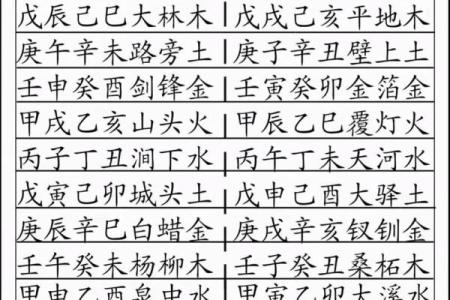 戊辰己巳大林木 戊戌己亥平地木
庚午辛未路旁土 庚子辛丑壁上土
壬申癸酉剑锋金 壬寅癸卯金箔金
甲戌乙亥山头火 甲辰乙巳覆灯火
丙子丁丑涧下水 丙午丁未天河水
戊寅己卯城头土 戊申己酉大驿土
庚辰辛巳白蜡金 庚戌辛亥钗钏金
壬午癸未杨柳木 壬子癸丑桑柘木
甲申乙酉泉中水 甲寅乙卯大溪水